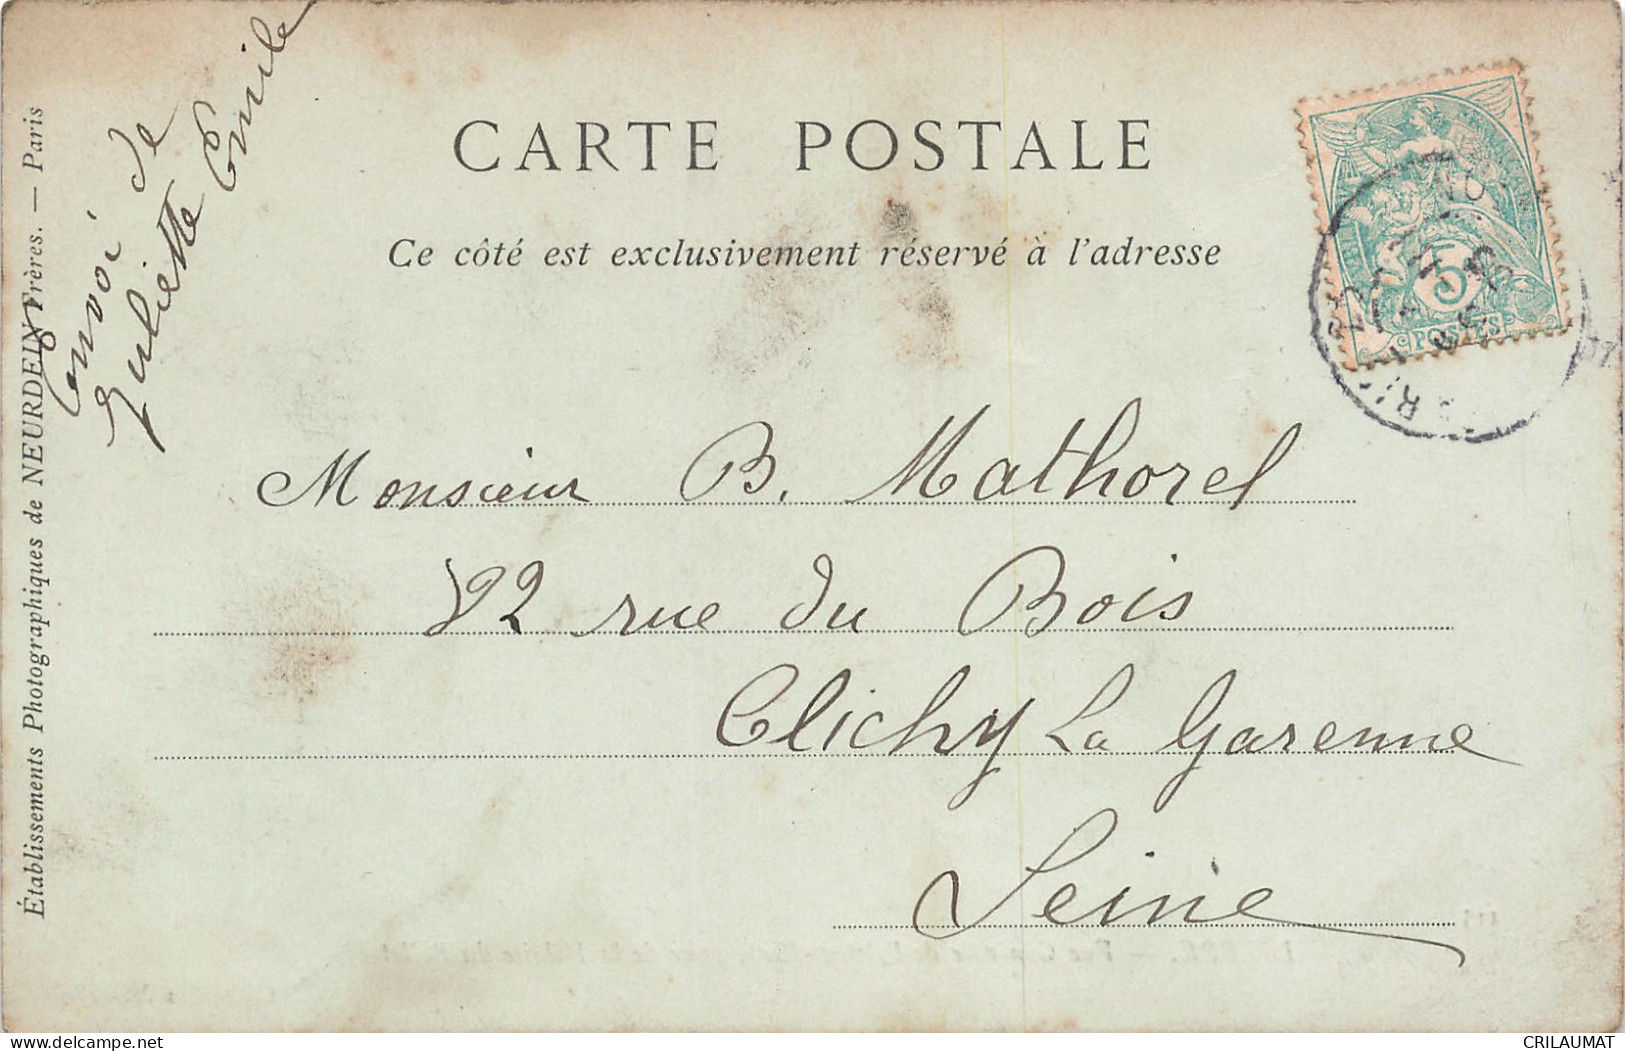 CARTE POSTALE
Ce côté est exclusivement réservé à l'adresse
Envoi de
Juliette Emile
Établissements Photographiques de NEURDEIN Frères. — Paris
5
POSTES
Monsieur B. Mathorel
22 rue du Bois
Clichy La Garenne
Seine
CRILAUMAT